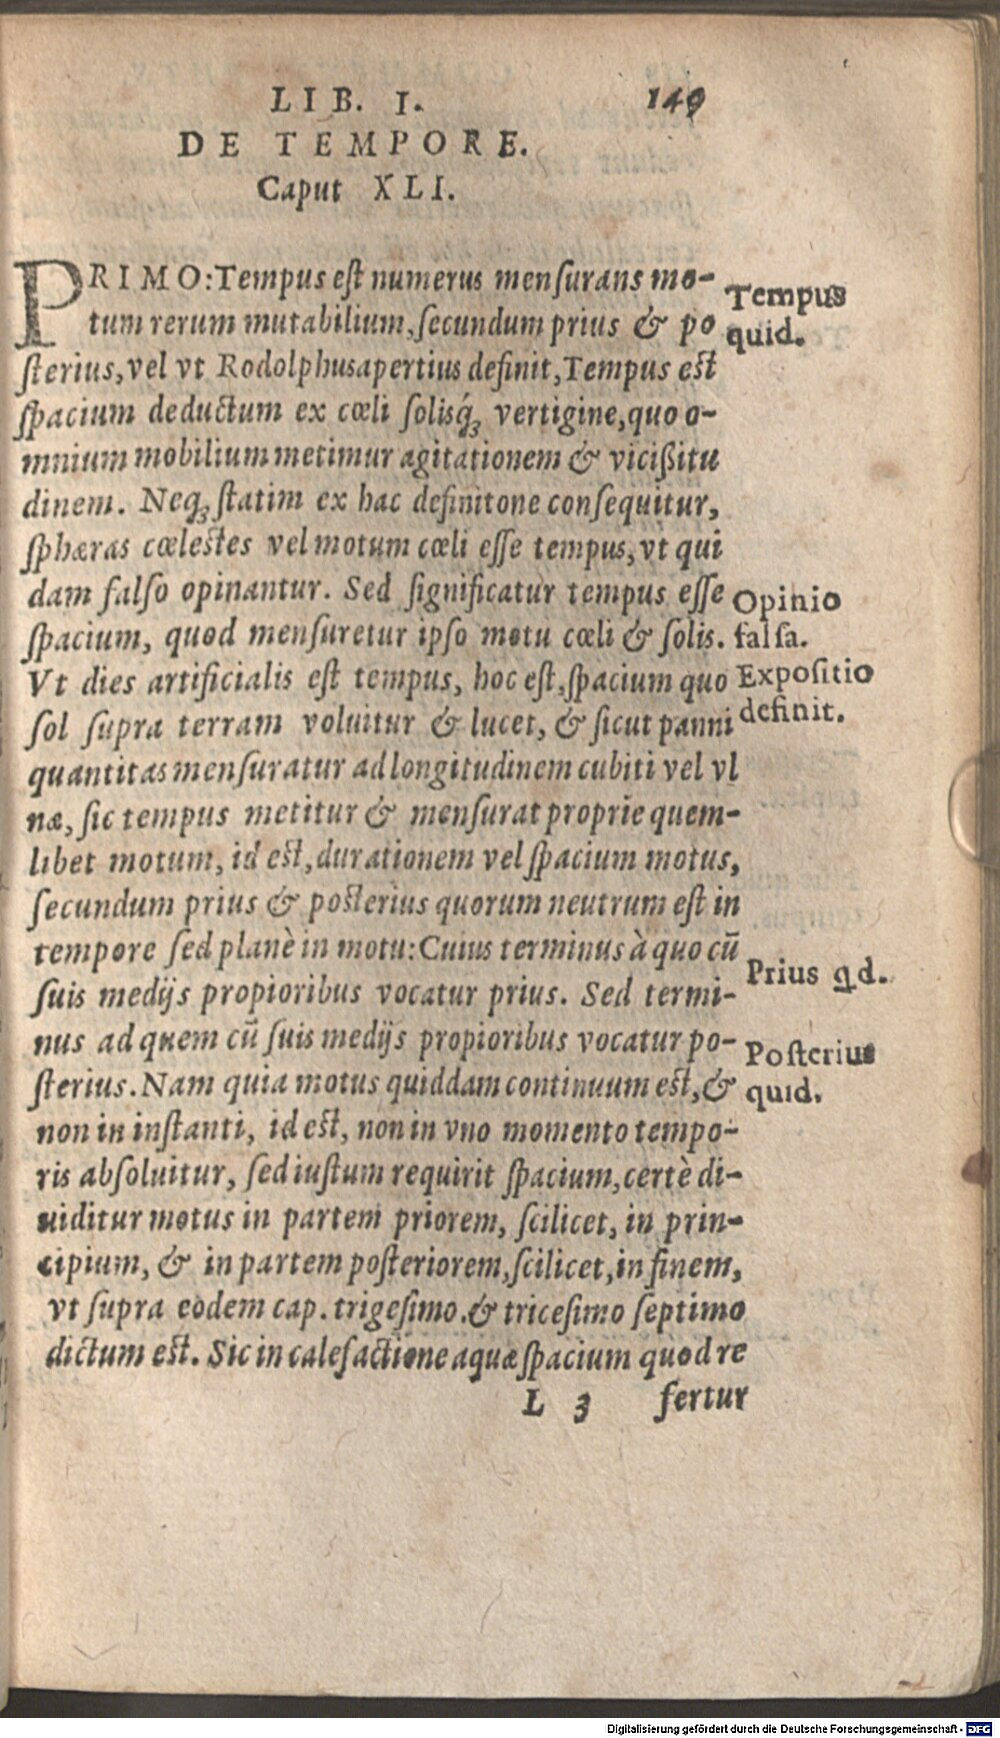 LIB. I. 149
DE TEMPORE.
Caput XLI.
PRIMO: Tempus est numerus mensurans mo-
tum rerum mutabilium, secundum prius & po
sterius, vel vt Rodolphus apertius definit, Tempus est
spacium deductum ex cœli solisq́ꝫ vertigine, quo o-
mnium mobilium metimur agitationem & vicißitu
dinem. Neqꝫ statim ex hac definitone consequitur,
sphæras cœlestes vel motum cœli esse tempus, vt qui
dam falso opinantur. Sed significatur tempus esse
spacium, quod mensuretur ipso motu cœli & solis.
Vt dies artificialis est tempus, hoc est, spacium quo
sol supra terram voluitur & lucet, & sicut panni
quantitas mensuratur ad longitudinem cubiti vel vl
næ, sic tempus metitur & mensurat proprie quem-
libet motum, id est, durationem vel spacium motus,
secundum prius & posterius quorum neutrum est in
tempore sed planè in motu: Cuius terminus à quo cū
suis medijs propioribus vocatur prius. Sed termi-
nus ad quem cū suis medijs propioribus vocatur po-
sterius. Nam quia motus quiddam continuum est, &
non in instanti, id est, non in vno momento tempo-
ris absoluitur, sed iustum requirit spacium, certè di-
uiditur motus in partem priorem, scilicet, in prin-
cipium, & in partem posteriorem, scilicet, in finem,
vt supra eodem cap. trigesimo. & tricesimo septimo
dictum est. Sic in calefactione aquæ spacium quod re
L 3 fertur
Tempus
quid.
Opinio
falsa.
Expositio
definit.
Prius qd.
Posterius
quid.
Digitalisierung gefördert durch die Deutsche Forschungsgemeinschaft - DFG